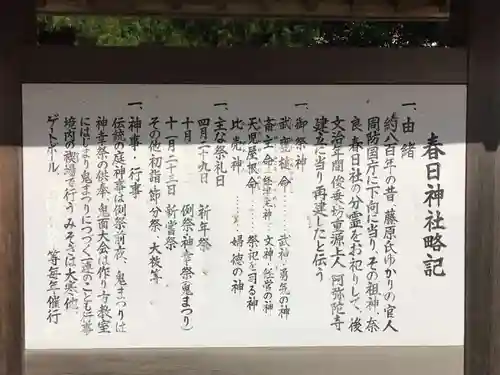 春日神社略記
一、由緒
約八百年の昔、藤原氏ゆかりの官人
周防国庁に下向に当り、その祖神、奈
良、春日社の分霊をお祀りして、後
文治年間俊乗坊重源上人、阿弥陀寺
建立に当り再建したと伝う
一、御祭神
武甕槌命………武神・勇気の神
斎主命(経津主神)……文神・経営の神
天児屋根命………祭祀を司る神
比売神………婦徳の神
一、主な祭礼日
四月二十九日 祈年祭
十月 例祭・神幸祭(鬼まつり)
十一月二十三日 新嘗祭
その他初詣、節分祭・大祓等
一、神事・行事
伝統の庭神事は例祭前夜、鬼まつりは
神幸祭の供奉、鬼面大会は作り方教室
にはじまり鬼まつりにつづく達のことも行事
境内の禊場で行うみそぎは大寒他、
ゲートボール 等毎年催行